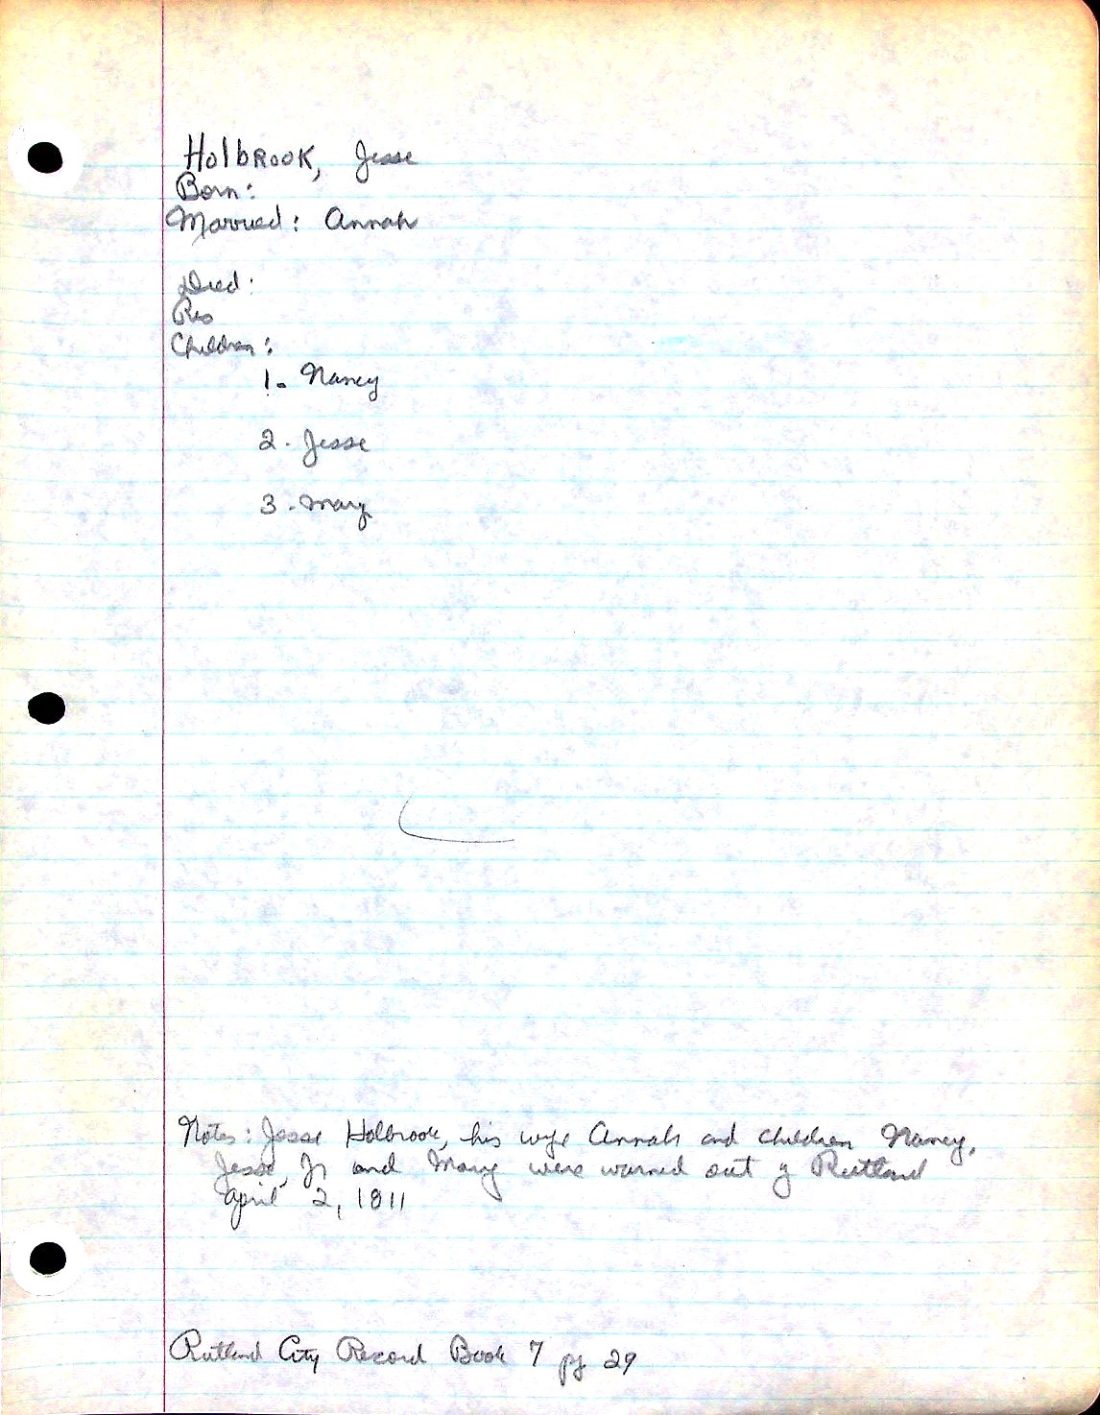 HolbRook, Jesse
Born:
Married: Annah
Died:
Res
Children:
1- Nancy
2- Jesse
3- Mary
Notes: Jesse Holbrook, his wife Annah and children Nancy,
Jesse, Jr and Mary were warned out of Rutland
April 2, 1811
Rutland City Record Book 7 pg 29